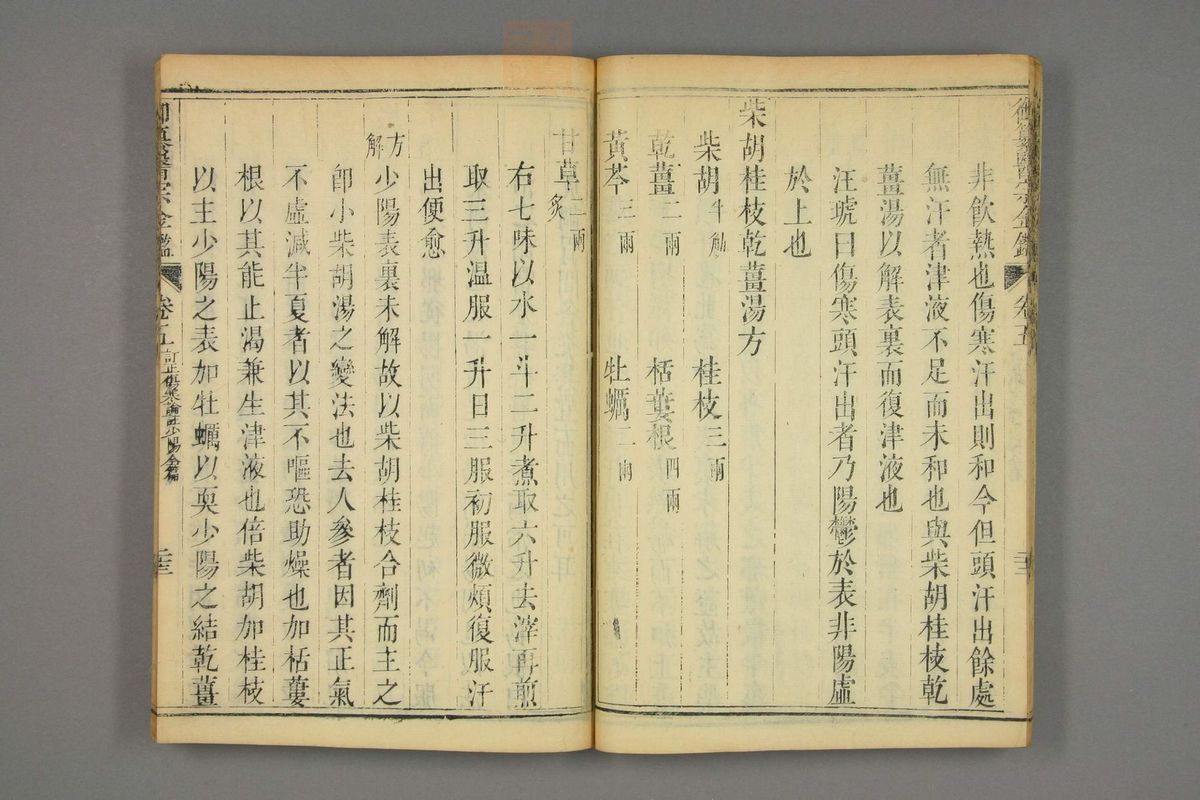 御纂醫宗金鑑 卷五
非飲熱也傷寒汗出則和今但頭汗出餘處
無汗者津液不足而未和也與柴胡桂枝乾
薑湯以解表裏而復津液也
汪琥曰傷寒頭汗出者乃陽鬱於表非陽虛
於上也
柴胡桂枝乾薑湯方
柴胡半觔 桂枝三兩
乾薑二兩 栝蔞根四兩
黃芩三兩 牡蠣二兩
甘草二兩炙
右七味以水一斗二升煮取六升去滓再煎
取三升温服一升日三服初服微煩復服汗
出便愈
方解
少陽表裏未解故以柴胡桂枝合劑而主之
卽小柴胡湯之變法也去人參者因其正氣
不虛減半夏者以其不嘔恐助燥也加栝蔞
根以其能止渴兼生津液也倍柴胡加桂枝
以主少陽之表加牡蠣以耎少陽之結乾薑
御纂醫宗金鑑 卷五 訂正傷寒論註少陽全篇